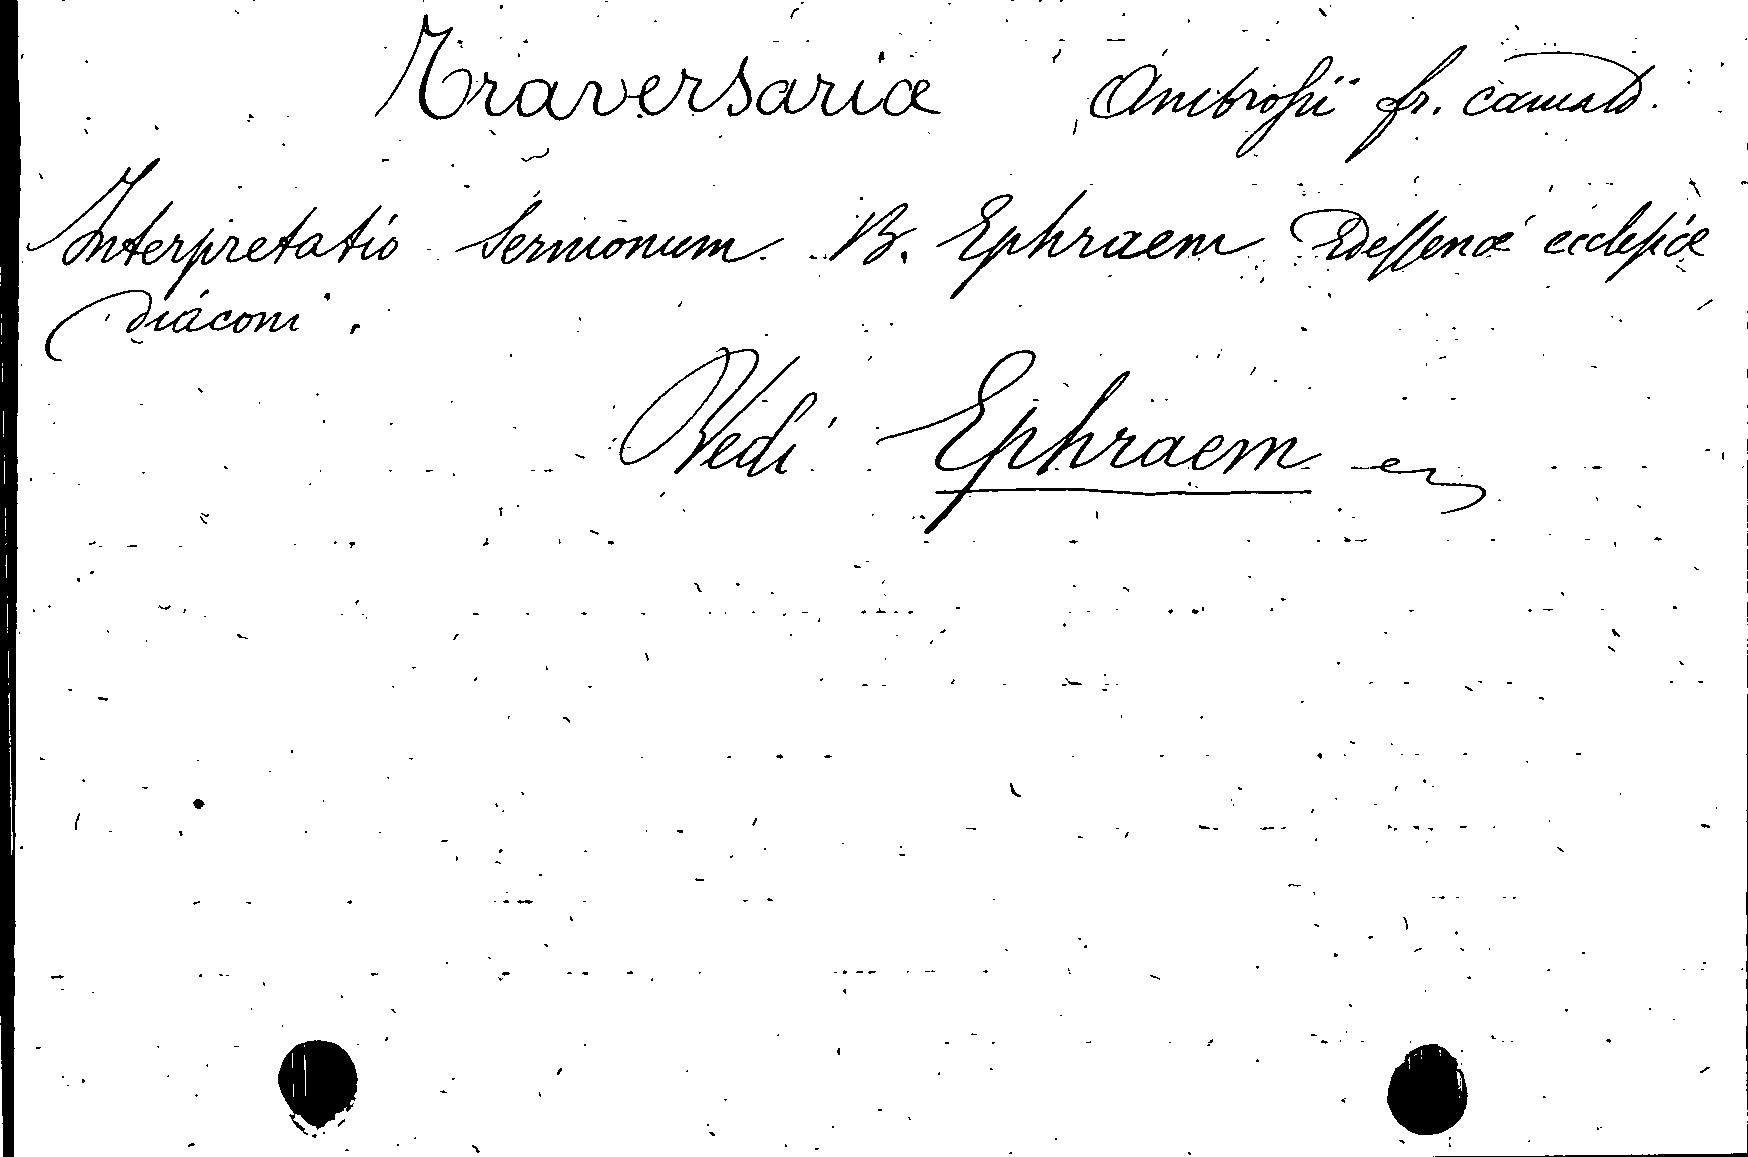 Traversariae Ambrosii fr. camald.
Interpretatio Sermonum B. Ephraem Edessenae ecclesiae
diaconi.
Vedi Ephraem